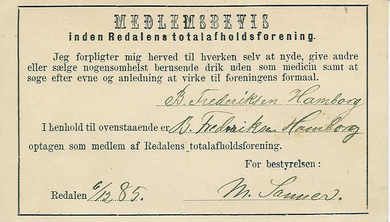 MEDLEMSBEVIS
inden Redalens totalafholdsforening.
Jeg forpligter mig herved til hverken selv at nyde, give andre
eller sælge nogensomhelst berusende drik uden som medicin samt at
søge efter evne og anledning at virke til foreningens formaal.
B. Frederiksen Hamborg
I henhold til ovenstaaende er B. Fredriksen Hamborg
optagen som medlem af Redalens totalafholdsforening.
For bestyrelsen:
Redalen 6/12 85. M. Sanner.